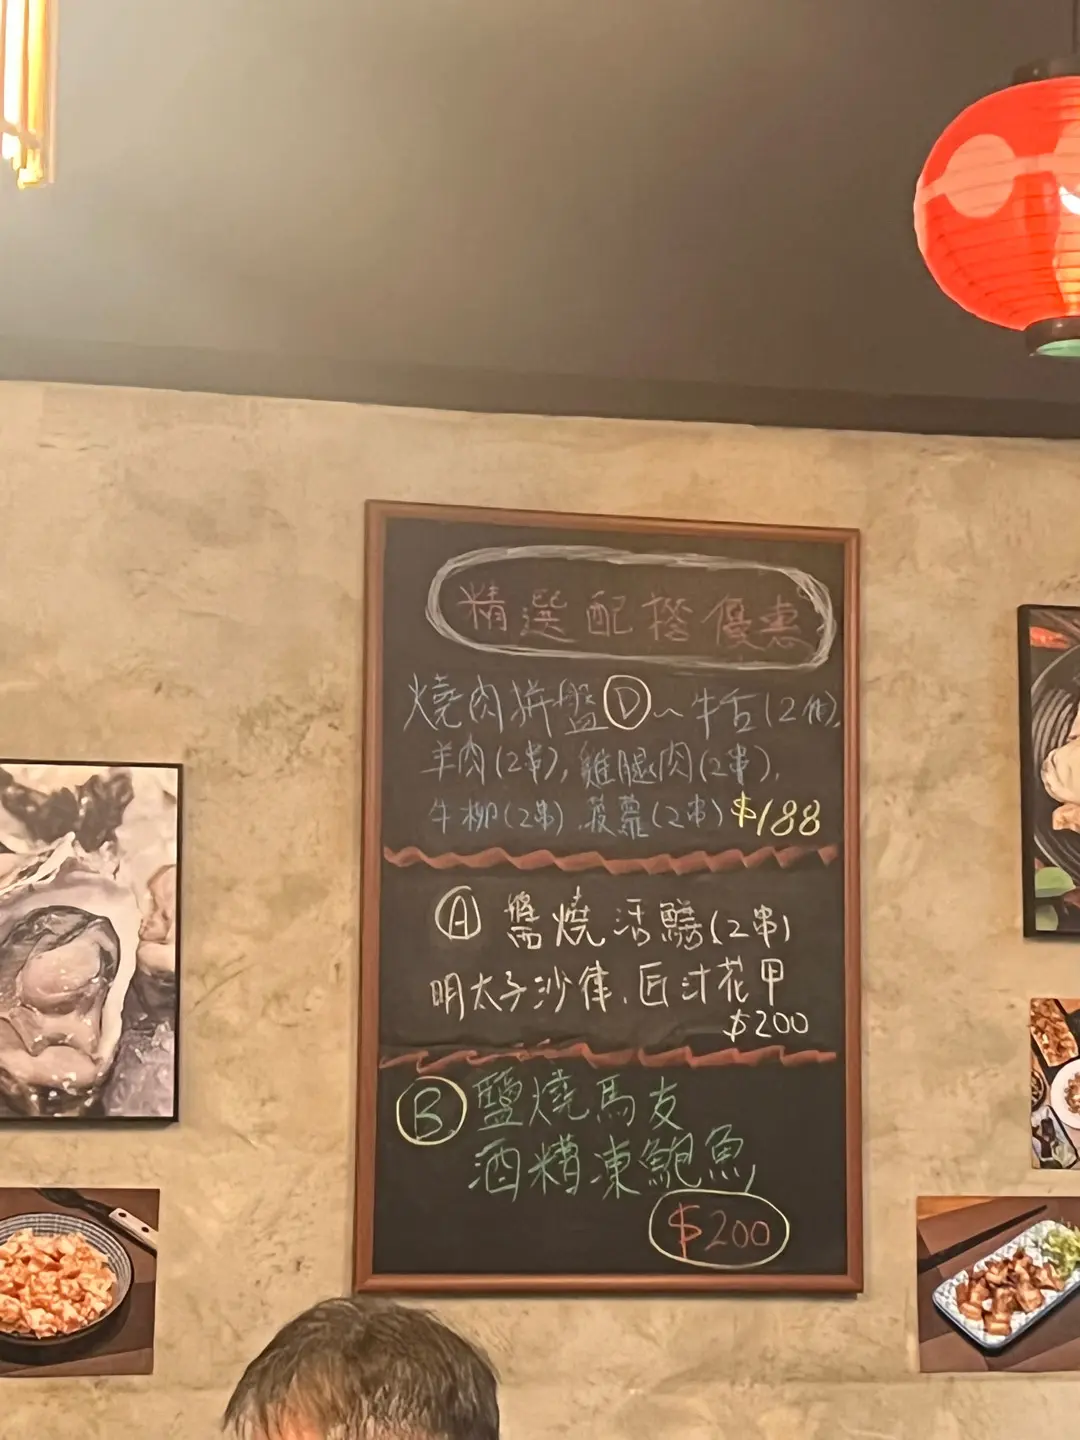 精選配搭優惠
燒肉拼盤Ⓓ~牛舌(2件),
羊肉(2串),雞腿肉(2串),
牛柳(2串).菠蘿(2串)$188
Ⓐ 燒活鱔(2串)
明太子沙律.汁花甲
$200
Ⓑ 鹽燒馬友
酒糟凍鮑魚
$200